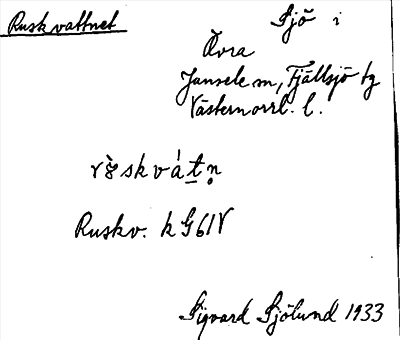 Ruskvattnet
Sjö i
Övra
Junsele sn, Fjällsjö tg
Västernorrl. l.
Ruskv. k G61V
Sigvard Sjölund 1933